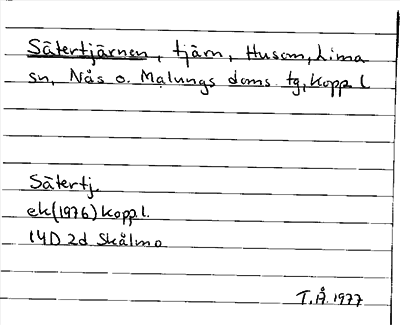 Sätertjärnen, tjärn, Husom, Lima
sn, Nås o. Malungs doms. tg, Kopp l
Sätertj.
ek(1976) Kopp l.
14D 2d Skålmo
T.Å. 1977